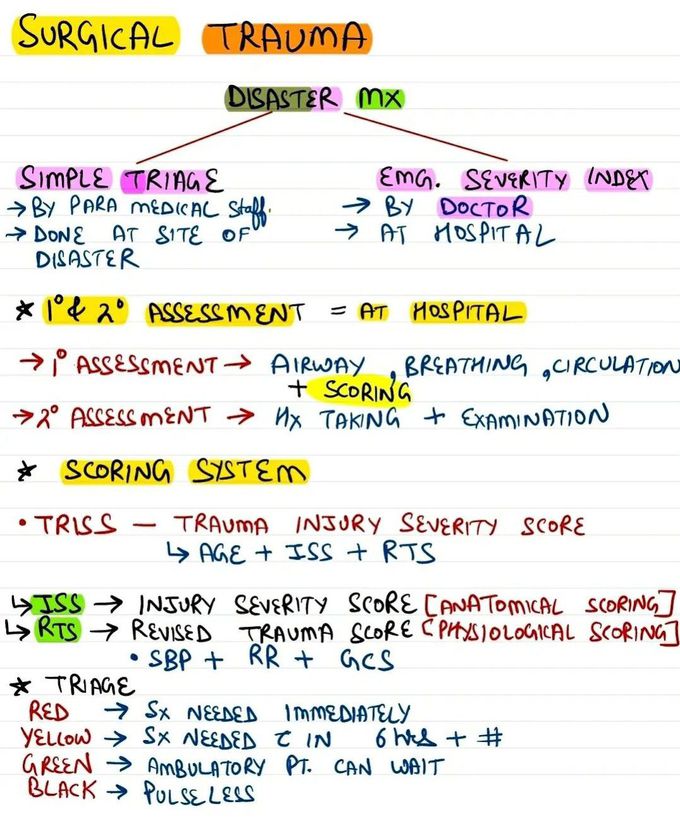 SURGICAL TRAUMA
DISASTER MX
SIMPLE TRIAGE
→ BY PARA MEDICAL Staff.
→ DONE AT SITE OF
DISASTER
EMG. SEVERITY INDEX
→ BY DOCTOR
→ AT HOSPITAL
* 1° & 2° ASSESSMENT = AT HOSPITAL
→ 1° ASSESSMENT → AIRWAY, BREATHING, CIRCULATION
+ SCORING
→ 2° ASSESSMENT → Hx TAKING + EXAMINATION
* SCORING SYSTEM
• TRISS — TRAUMA INJURY SEVERITY SCORE
↳ AGE + ISS + RTS
↳ ISS → INJURY SEVERITY SCORE [ANATOMICAL SCORING]
↳ RTS → REVISED TRAUMA SCORE [PHYSIOLOGICAL SCORING]
• SBP + RR + GCS
* TRIAGE
RED → Sx NEEDED IMMEDIATELY
YELLOW → Sx NEEDED c̄ IN 6 hrs + #
GREEN → AMBULATORY PT. CAN WAIT
BLACK → PULSELESS